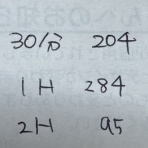 30分 204
1H 284
2H 95